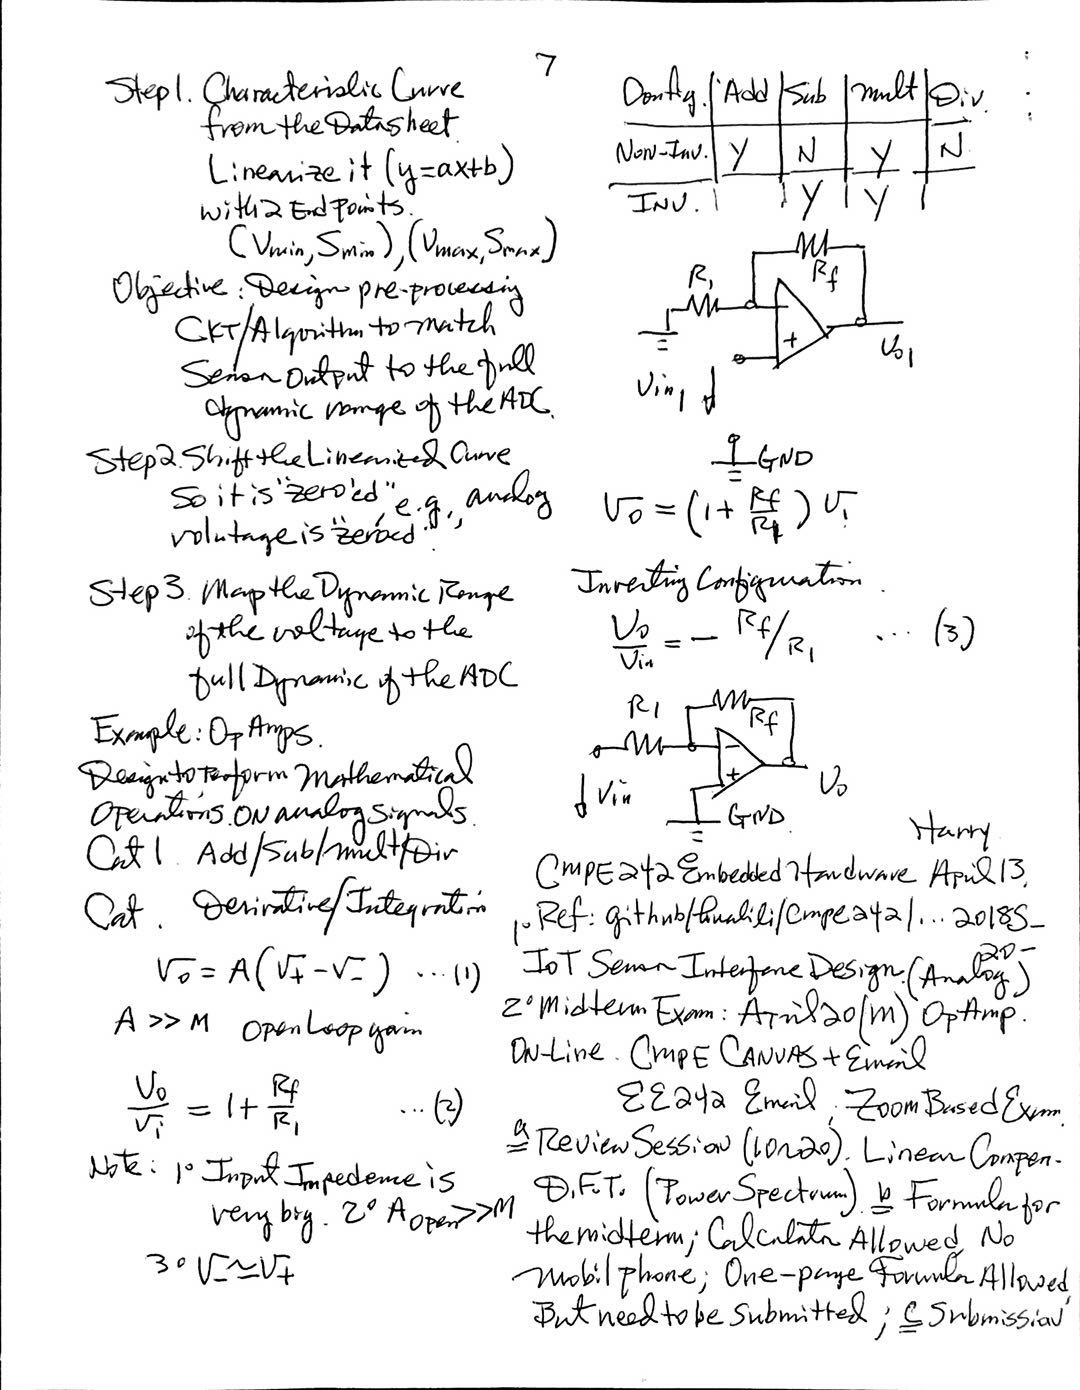 7
Step1. Characteristic Curve
from the Datasheet
Linearize it (y=ax+b)
with 2 End Points.
(Vmin, Smin), (Vmax, Smax)
Objective: Design pre-processing
CKT/Algorithm to match
Sensor Output to the full
dynamic range of the ADC.
Step2. Shift the Linearized Curve
So it is "zero'ed", e.g., analog
volutage is "zeroed".
Step3. Map the Dynamic Range
of the voltage to the
full Dynamic of the ADC
Example: Op Amps.
Design to Perform Mathematical
Operations. ON analog signals.
Cat 1. Add/Sub/mult/Div
Cat. Derivative/Integration
Vo = A(V+ - V-) ...(1)
A >> M Open Loop gain
Vo/Vi = 1 + Rf/R1 ...(2)
Note: 1° Input Impedence is
very big. 2° Aopen >> M
3° V- ≃ V+
Config. | Add | Sub | mult | Div.
Non-Inv. | Y | N | Y | N
INV. | | Y | Y |
R1
Rf
+
Vin1
Vo1
GND
Vo = (1 + Rf/R1) Vi
Inverting Configuration.
Vo/Vin = - Rf/R1 ... (3)
R1
Rf
-
+
Vin
Vo
GND
Harry
CMPE242 Embedded Hardware April 13.
1° Ref: github/hualili/Cmpe242/... 2018S-
20-
IoT Sensor Interface Design. (Analog)
2° Midterm Exam: April 20 (M) OpAmp.
ON-Line. CMPE CANVAS + Email
EE242 Email, Zoom Based Exam
a Review Session (10~20). Linear Compen-
D.F.T. (Power Spectrum) b Formula for
the midterm; Calculator Allowed, No
mobil phone; One-page Formula Allowed,
But need to be Submitted; c Submission